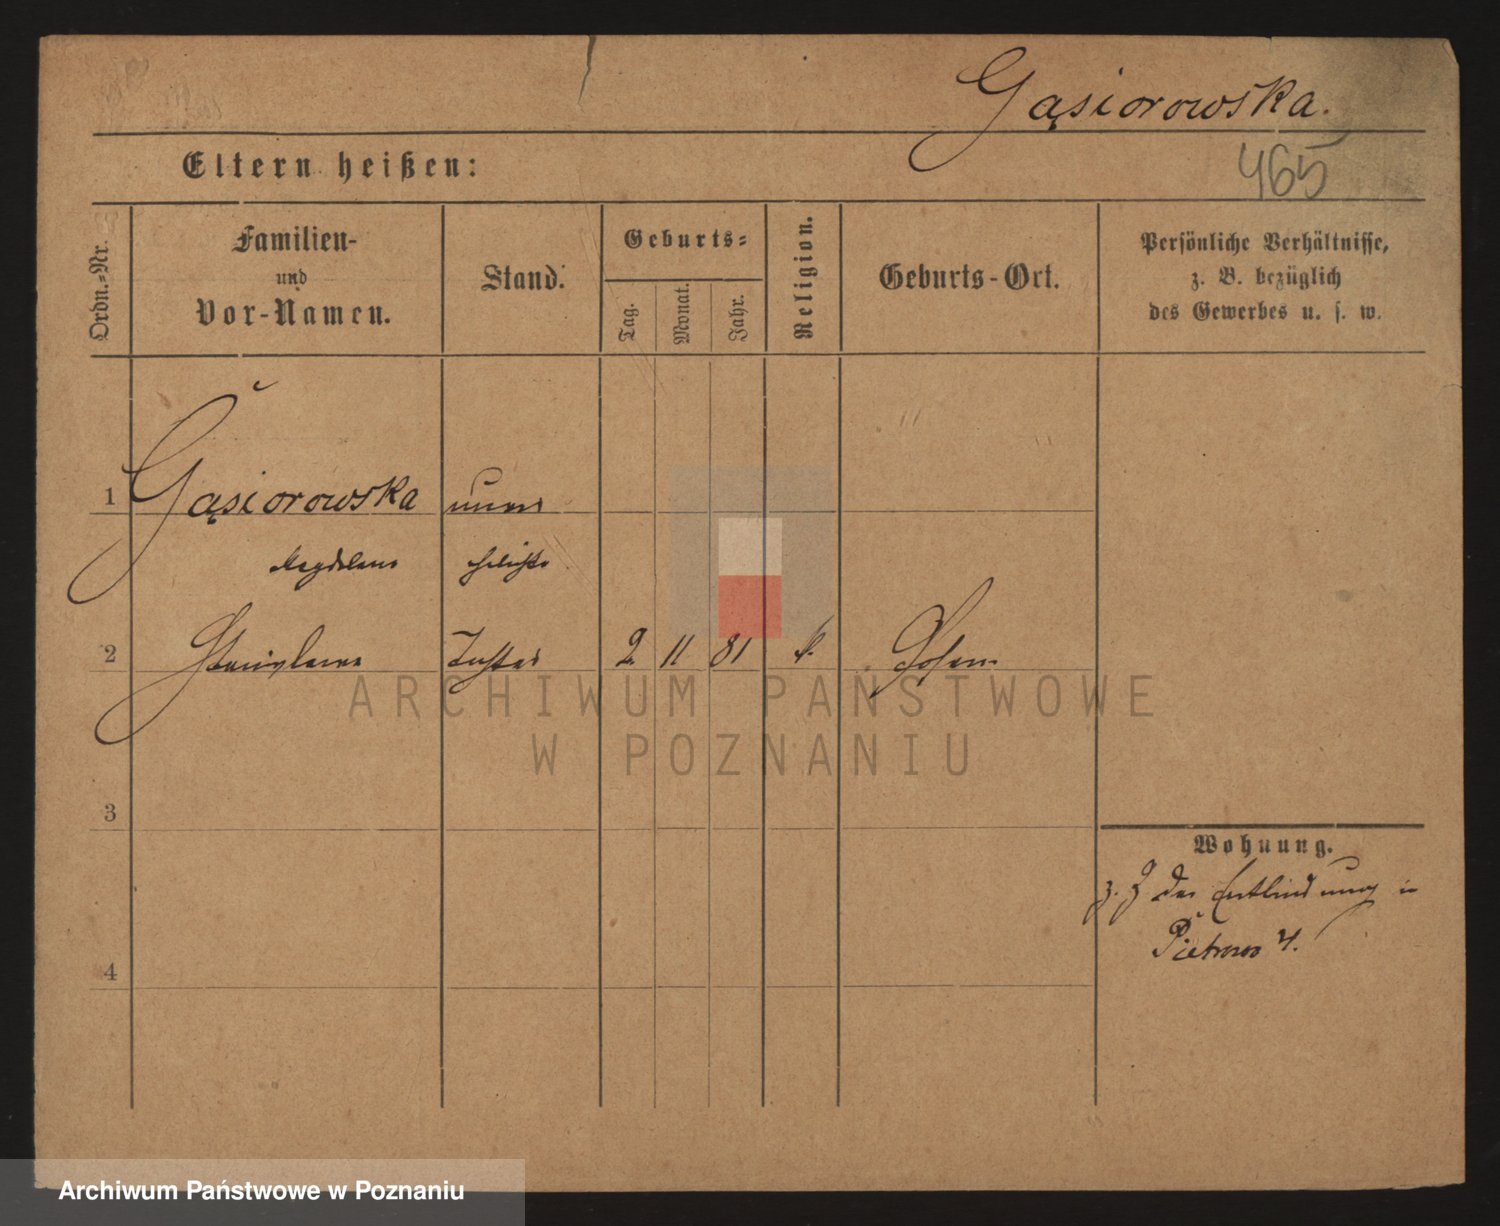 Gąsiorowska.
Eltern heißen:
465
Ordn.-Nr.
Familien-
und
Vor-Namen.
Stand.
Geburts-
Tag.
Monat.
Jahr.
Religion.
Geburts-Ort.
Persönliche Verhältnisse,
z. B. bezüglich
des Gewerbes u. s. w.
1 Gąsiorowska unver
Magdalena ehelichte
2 Stanislawa Tochter 2 11 81 k. Posen
ARCHIWUM PAŃSTWOWE
W POZNANIU
3
Wohnung.
z. Z der Entbindung in
Pietrowo 4.
4
Archiwum Państwowe w Poznaniu